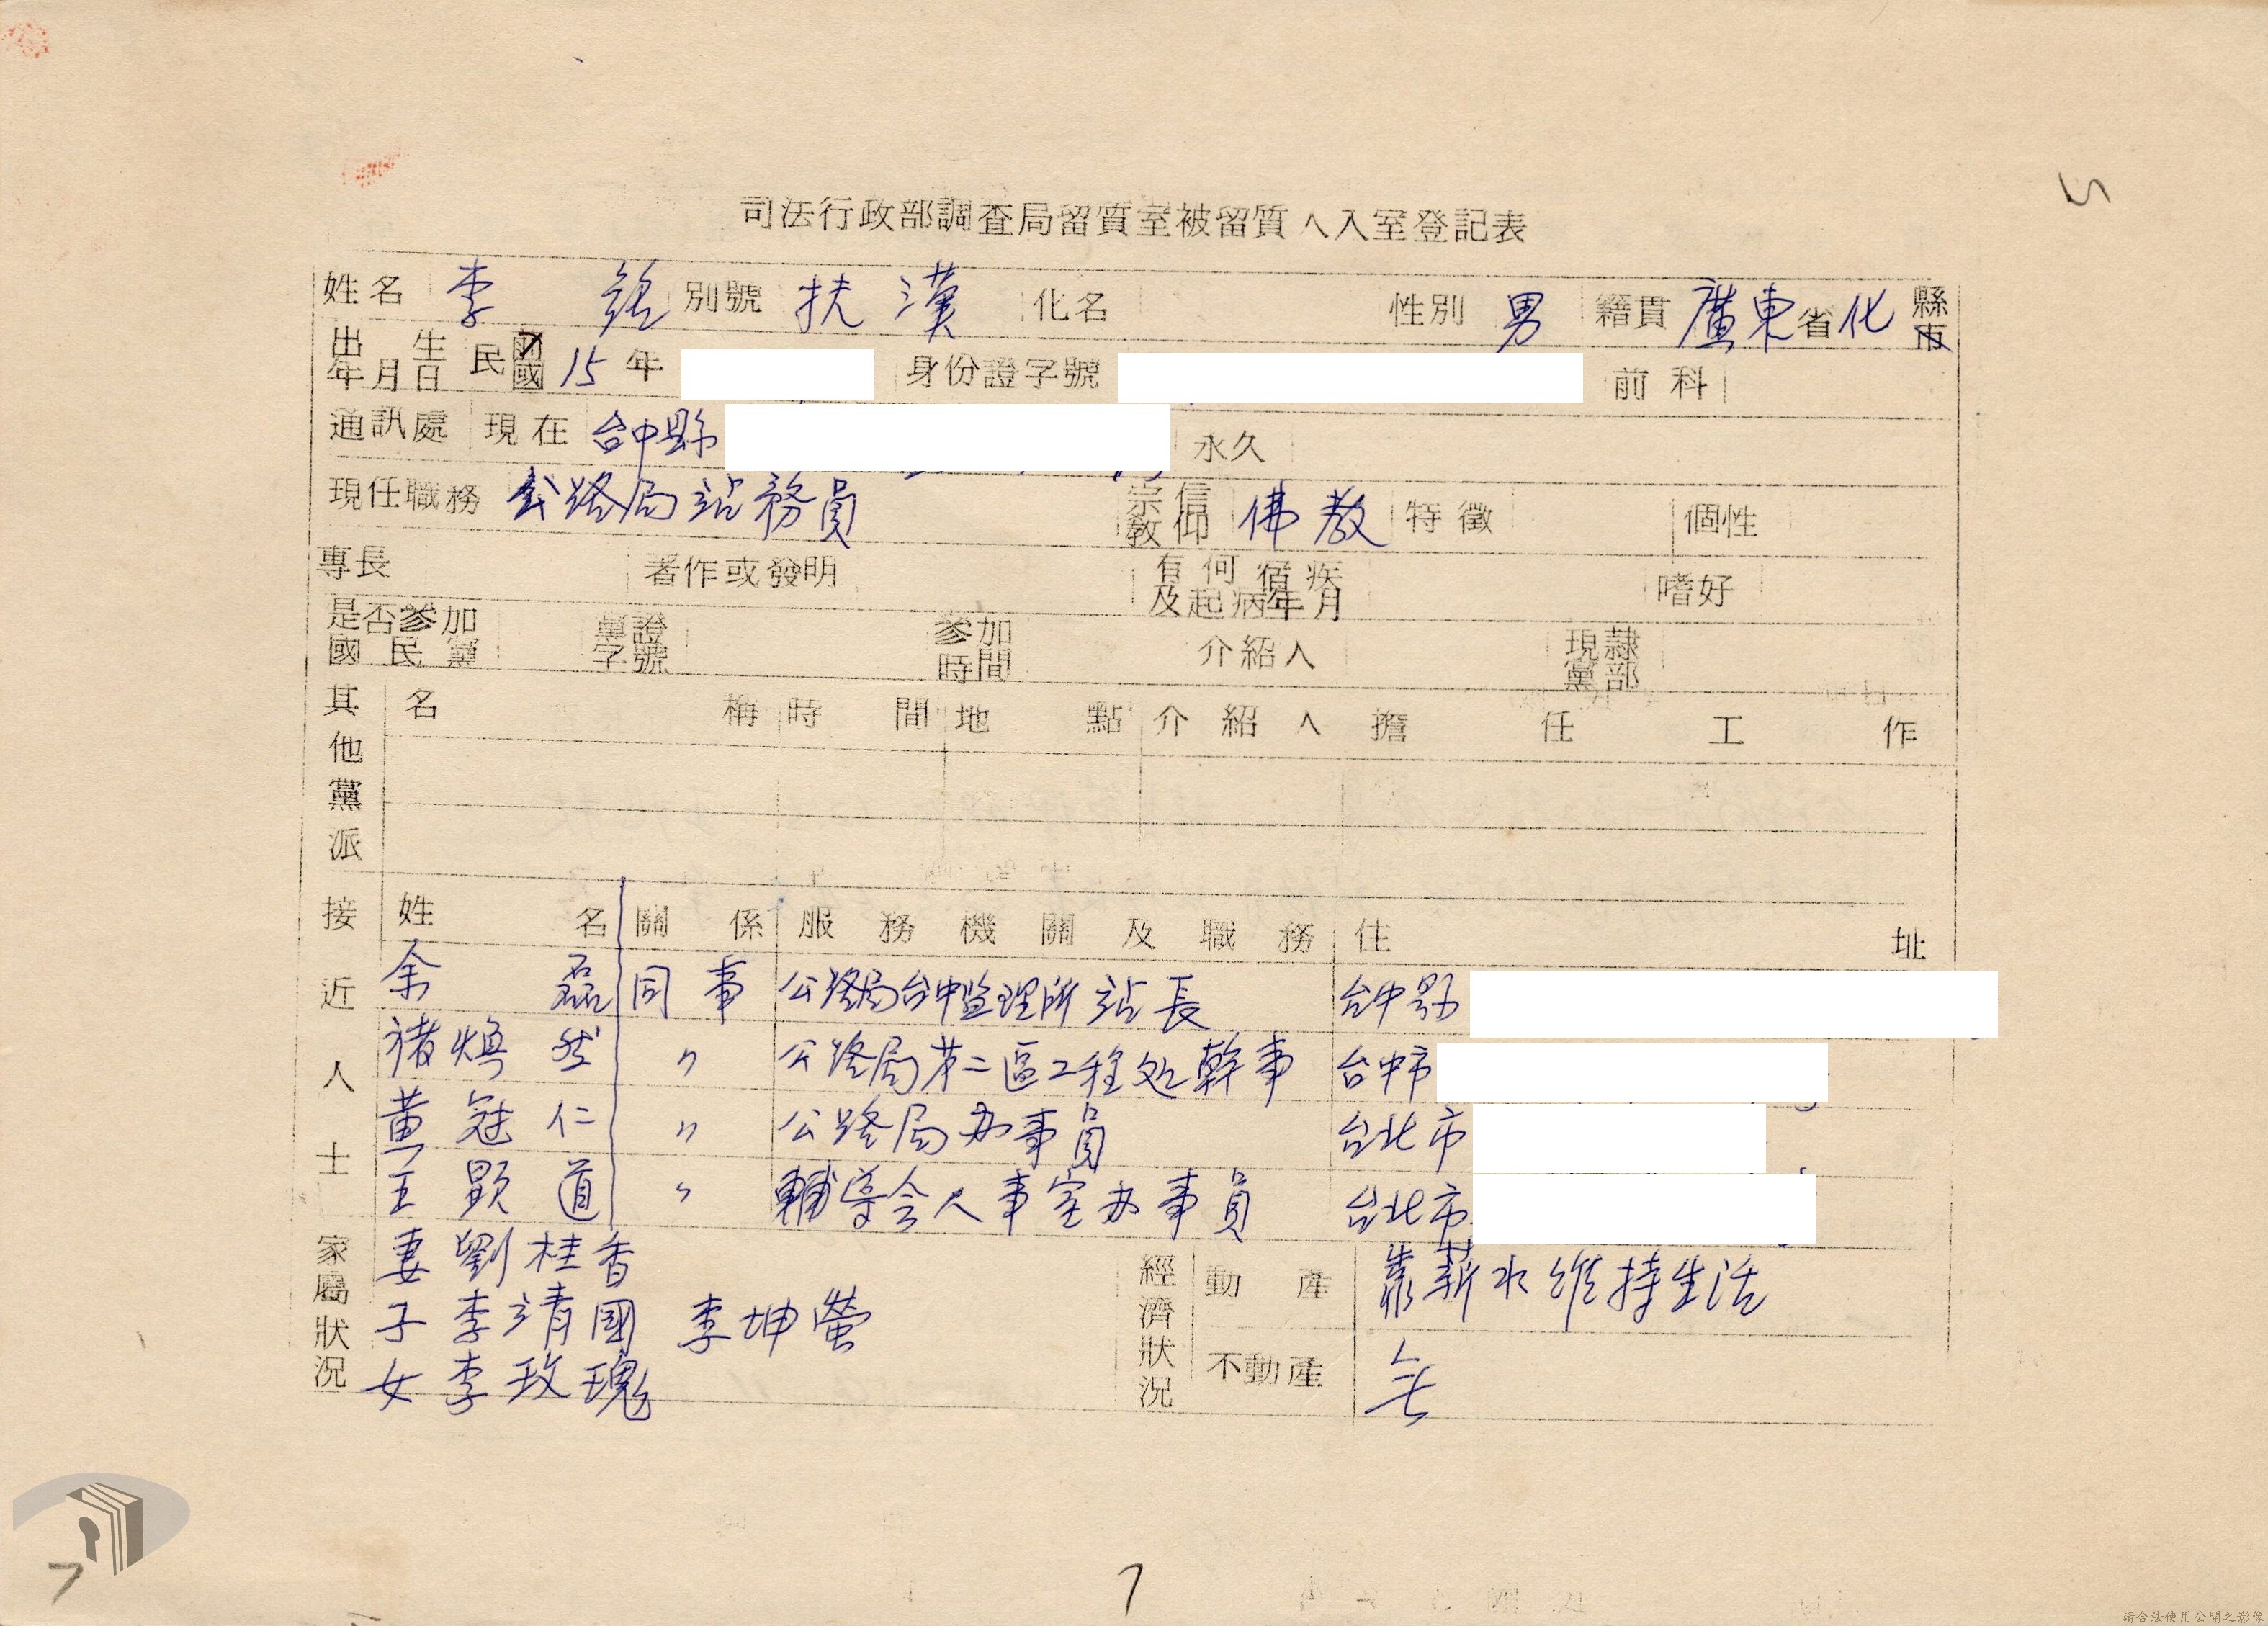 司法行政部調查局留質室被留質人入室登記表
姓名 李 銘 別號 扶漢 化名 性別 男 籍貫 廣東省化縣市
出生年月日 民前國 15年 身份證字號 前科
通訊處 現在 台中縣 永久
現任職務 公路局站務員 宗教信仰 佛教 特徵 個性
專長 著作或發明 有何宿疾及起病年月 嗜好
是否參加國民黨 黨證字號 參加時間 介紹人 現隸黨部
其他黨派 名稱 時間 地點 介紹人 擔任工作
接近人士 姓名 關係 服務機關及職務 住址
余磊 同事 公路局台中监理所站長 台中县
褚煥然 〃 公路局第二區工程处幹事 台中市
黃冠仁 〃 公路局办事員 台北市
王顯道 〃 輔導会人事室办事員 台北市
家屬狀況 妻 劉桂香
子 李靖國 李坤螢
女 李玫瑰
經濟狀況 動產 靠薪水維持生活
不動產 无
5
7
7
請合法使用公開之影像